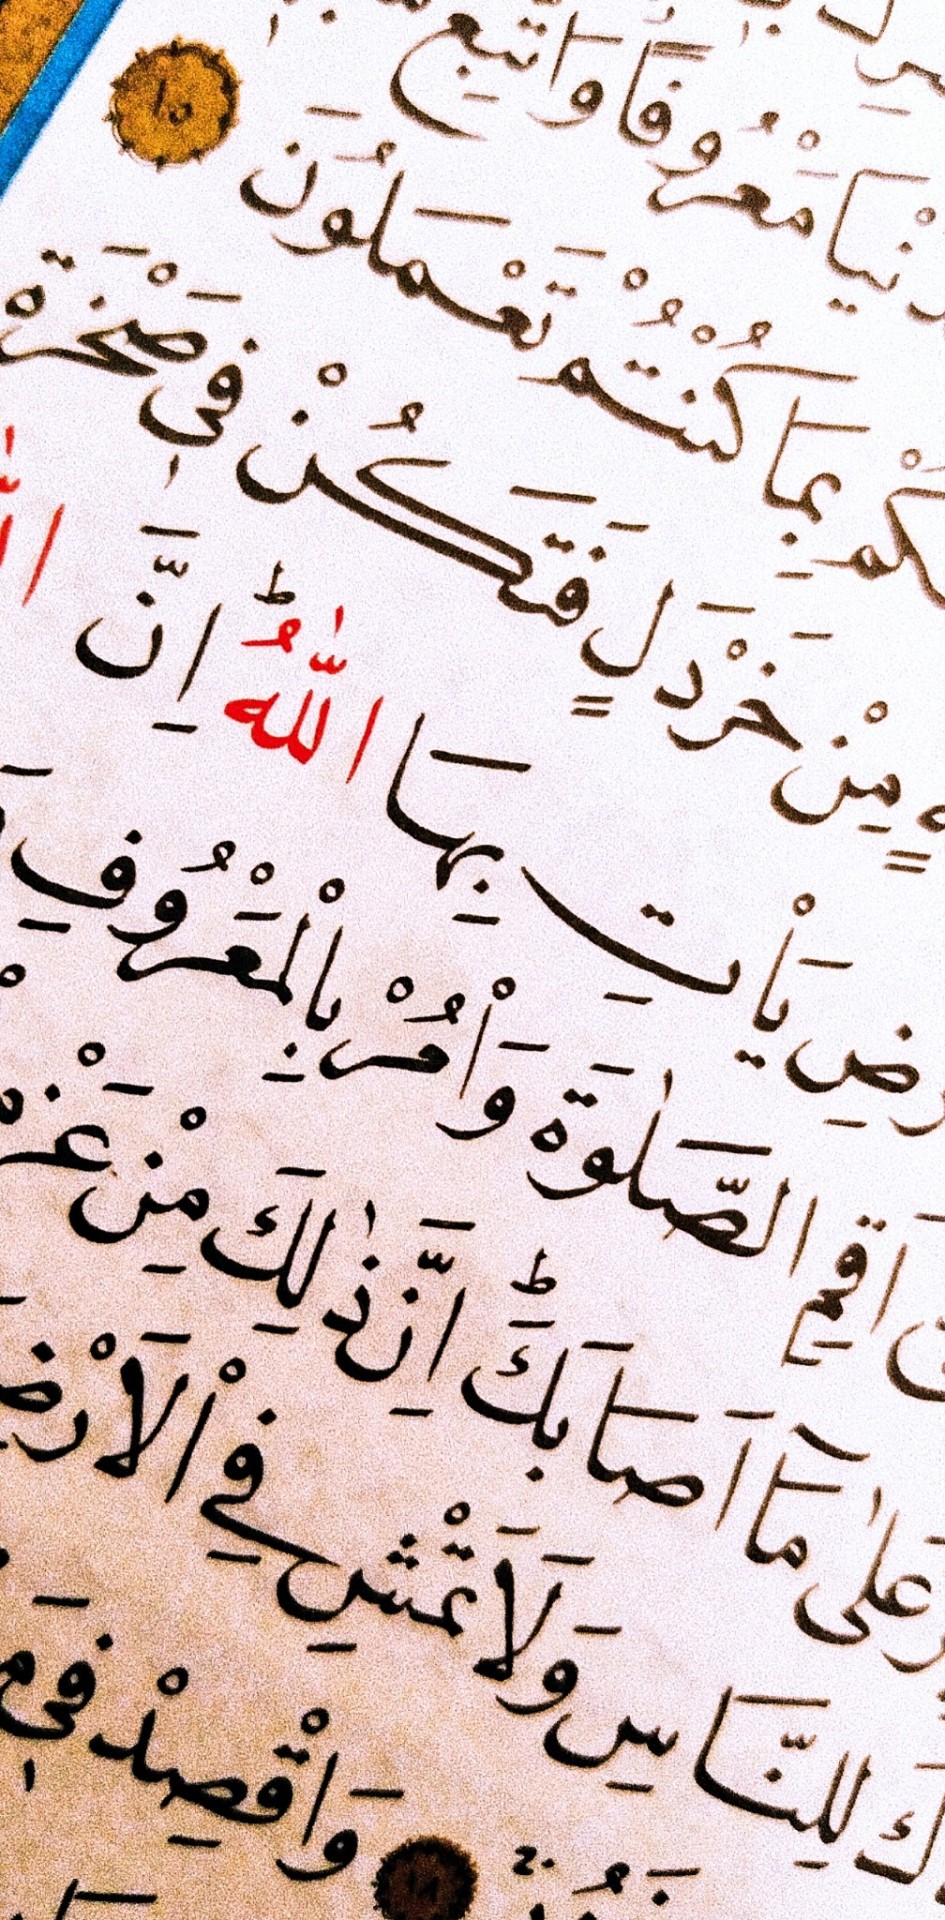 نْيَا مَعْرُوفًا وَاتَّبِعْ
كُمْ بِمَا كُنْتُمْ تَعْمَلُونَ ١٥
مِنْ خَرْدَلٍ فَتَكُنْ فِي صَخْرَةٍ
رْضِ يَأْتِ بِهَا اللّٰهُ ؕ اِنَّ
اَقِمِ الصَّلٰوةَ وَاْمُرْ بِالْمَعْرُوفِ
عَلٰى مَٓا اَصَابَكَ ؕ اِنَّ ذٰلِكَ مِنْ عَزْمِ
كَ لِلنَّاسِ وَلَا تَمْشِ فِي الْاَرْضِ
١٨ وَاقْصِدْ فِي